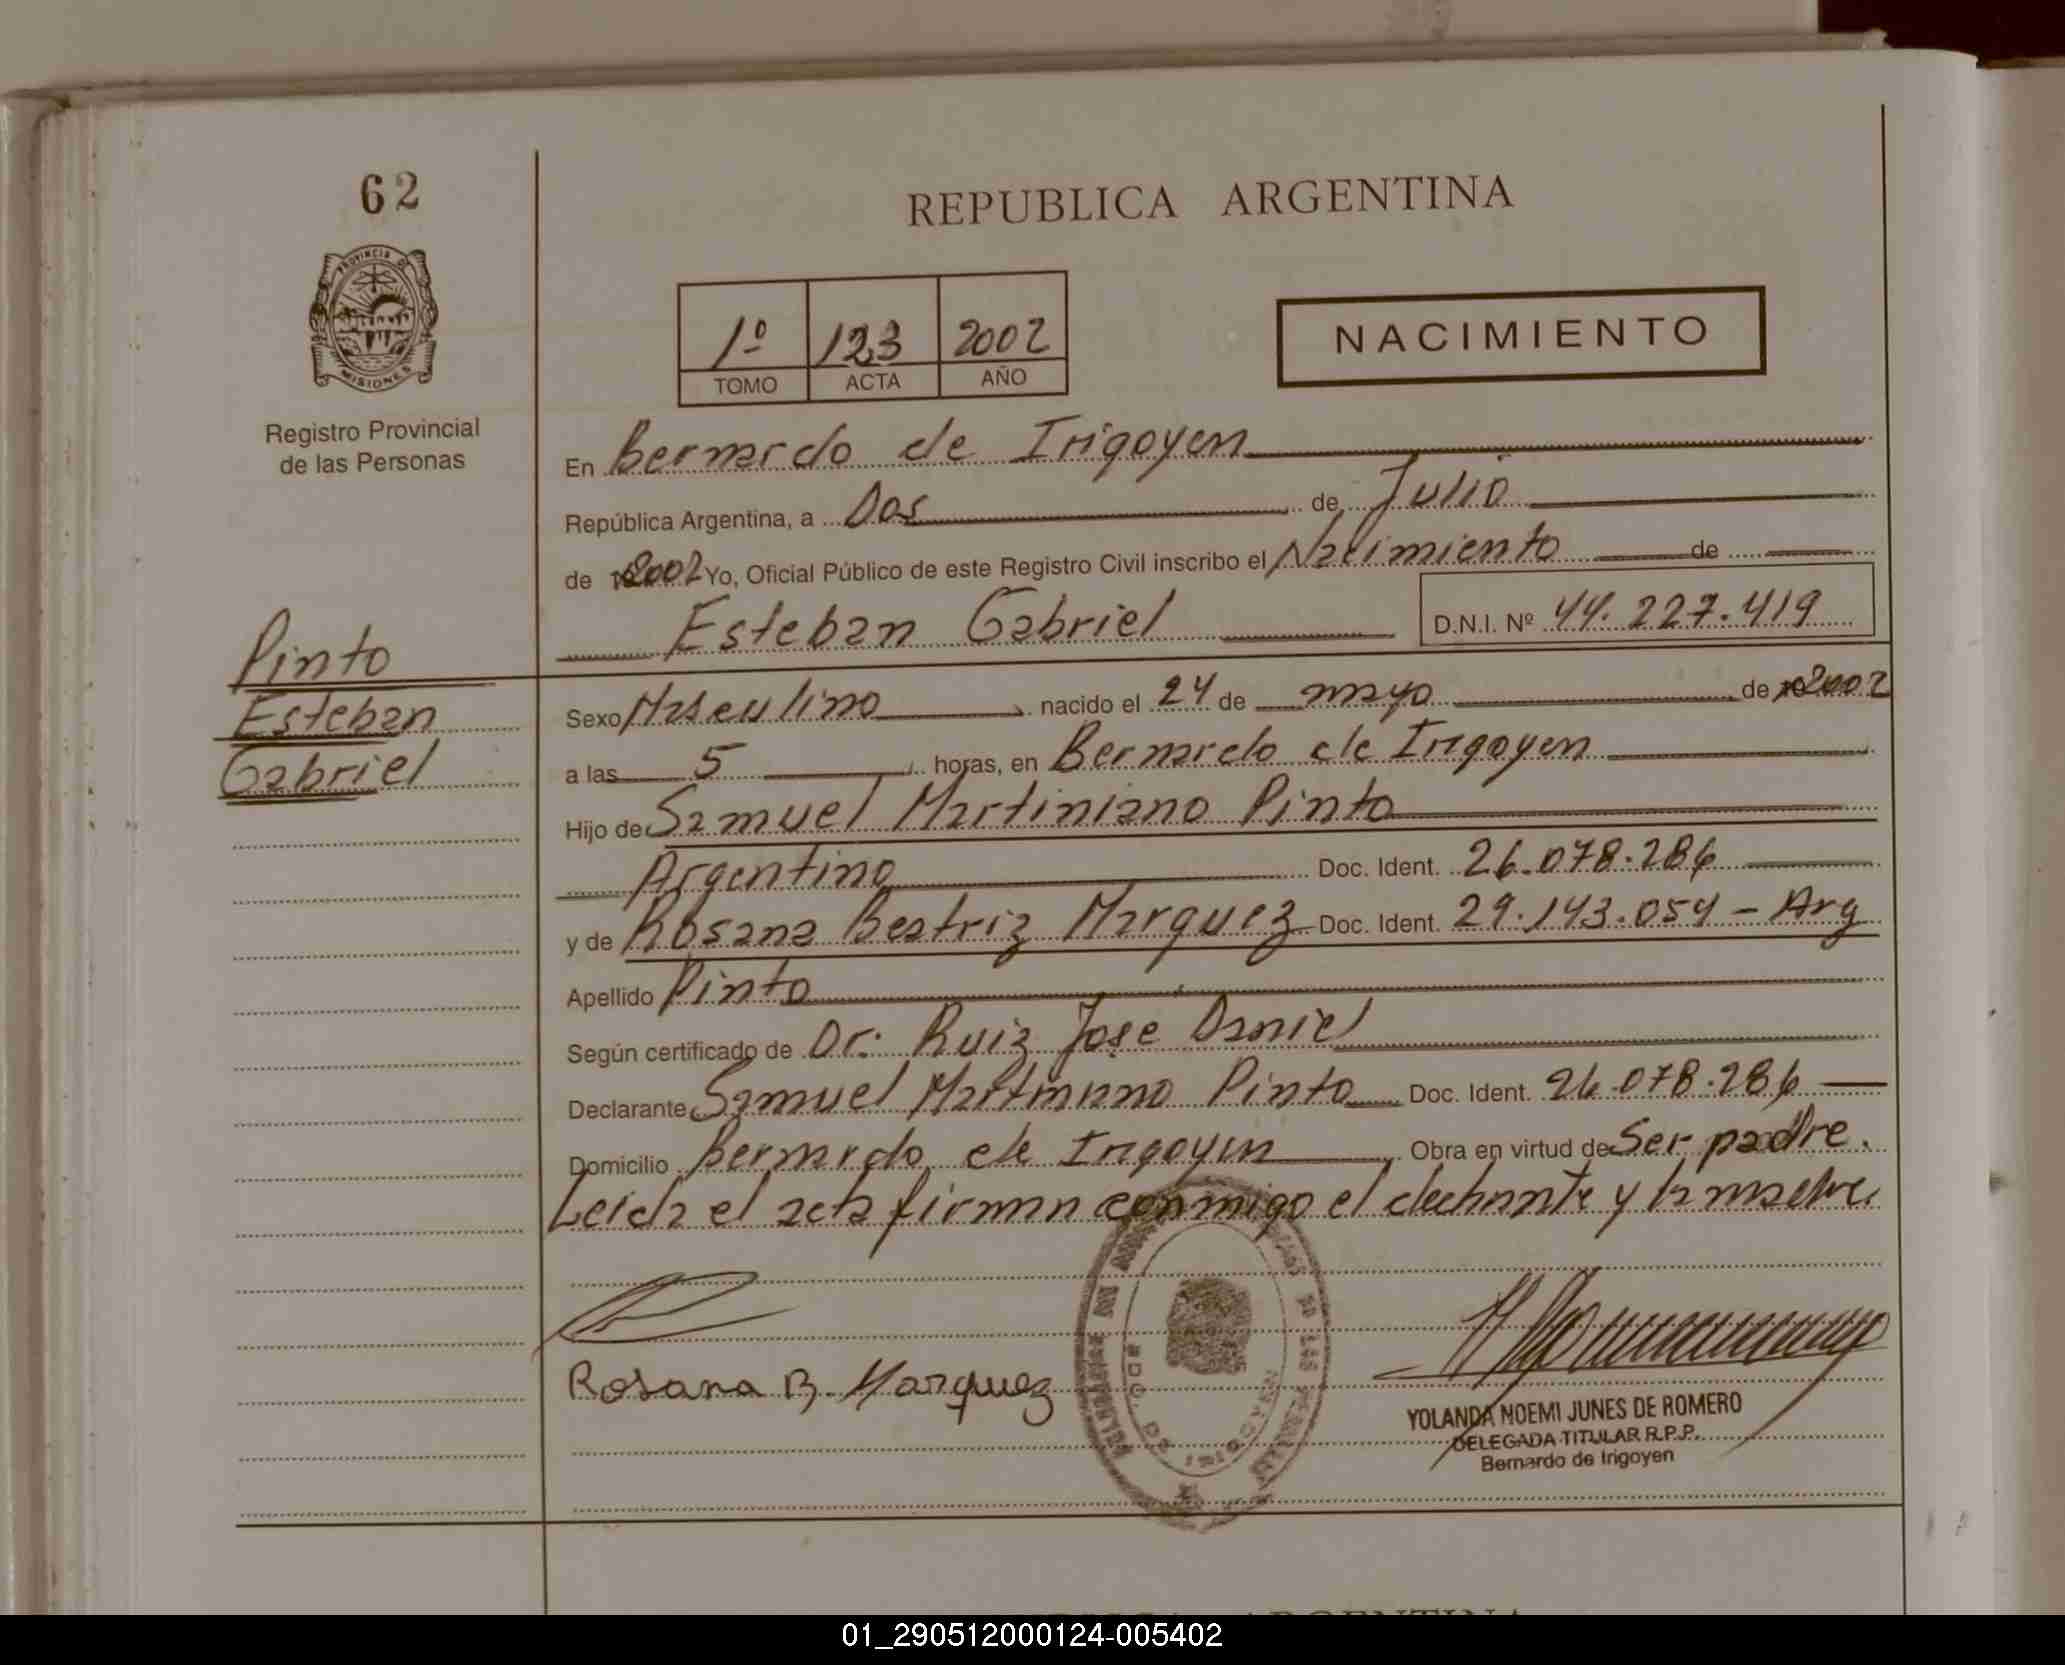 62
REPUBLICA ARGENTINA
PROVINCIA DE
MISIONES
Registro Provincial
de las Personas
1º 123 2002
TOMO ACTA AÑO
NACIMIENTO
En Bernardo de Irigoyen
República Argentina, a Dos de Julio
de 2002 Yo, Oficial Público de este Registro Civil inscribo el Nacimiento de
Esteban Gabriel D.N.I. Nº 44.227.419
Pinto
Esteban
Gabriel
Sexo Masculino nacido el 24 de mayo de 2002
a las 5 horas, en Bernardo de Irigoyen
Hijo de Samuel Martiniano Pinto
Argentino Doc. Ident. 26.078.286
y de Rosana Beatriz Marquez Doc. Ident. 29.143.054 - Arg
Apellido Pinto
Según certificado de Dr. Ruiz José Daniel
Declarante Samuel Martiniano Pinto Doc. Ident. 26.078.286
Domicilio Bernardo de Irigoyen Obra en virtud de Ser padre.
Leida el acta firman conmigo el declarante y la madre.
Rosana B. Marquez
BDO. DE IRIGOYEN
YOLANDA NOEMI JUNES DE ROMERO
DELEGADA TITULAR R.P.P.
Bernardo de Irigoyen
01_290512000124-005402